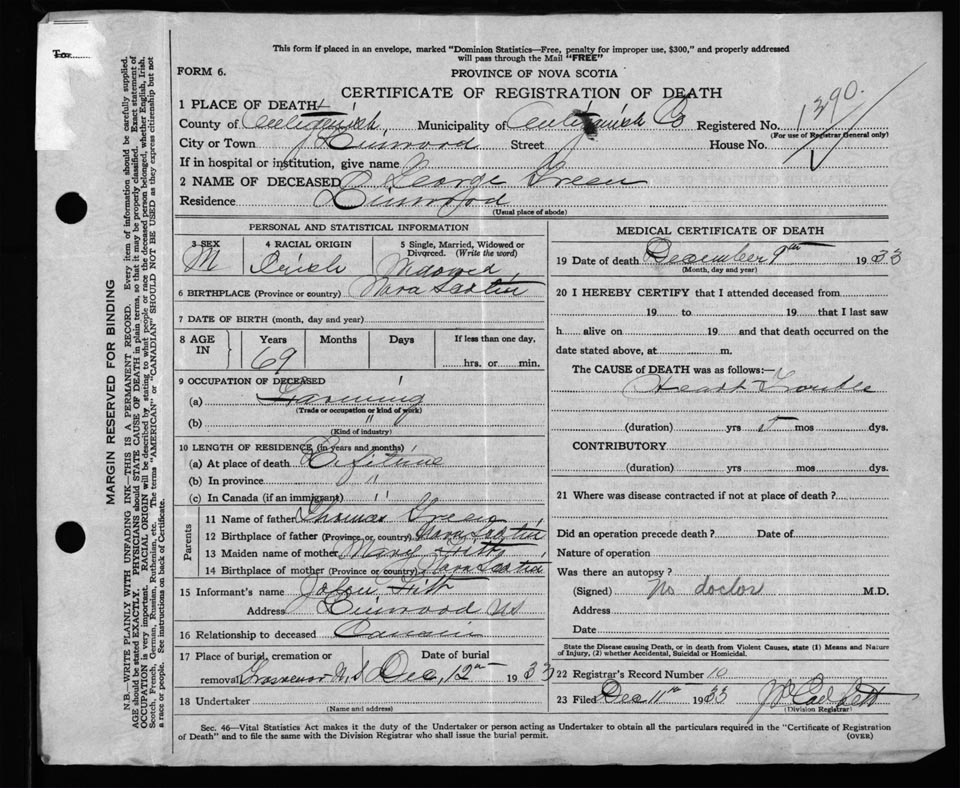 To
This form if placed in an envelope, marked "Dominion Statistics—Free, penalty for improper use, $300," and properly addressed
will pass through the Mail "FREE"
FORM 6.
PROVINCE OF NOVA SCOTIA
CERTIFICATE OF REGISTRATION OF DEATH
1390.
1 PLACE OF DEATH
County of Antigonish, Municipality of Antigonish Co Registered No.
(For use of Registrar General only)
City or Town Linwood Street House No.
If in hospital or institution, give name
2 NAME OF DECEASED George Green
Residence Linwood
(Usual place of abode)
PERSONAL AND STATISTICAL INFORMATION
3 SEX 4 RACIAL ORIGIN 5 Single, Married, Widowed or Divorced. (Write the word)
M Irish Widowed
6 BIRTHPLACE (Province or country) Nova Scotia
7 DATE OF BIRTH (month, day and year)
8 AGE IN Years Months Days If less than one day,
69 hrs. or min.
9 OCCUPATION OF DECEASED
(a) Farming
(Trade or occupation or kind of work)
(b) "
(Kind of industry)
10 LENGTH OF RESIDENCE (in years and months)
(a) At place of death Lifetime
(b) In province "
(c) In Canada (if an immigrant) "
Parents
11 Name of father Thomas Green
12 Birthplace of father (Province or country) Nova Scotia
13 Maiden name of mother Mary Fitt
14 Birthplace of mother (Province or country) Nova Scotia
15 Informant's name Fitt
Address Linwood NS
16 Relationship to deceased Cousin
17 Place of burial, cremation or Date of burial
removal Grosvenor N.S Dec, 12th 1933
18 Undertaker
(Name and address)
MEDICAL CERTIFICATE OF DEATH
19 Date of death December 9th 1933
(Month, day and year)
20 I HEREBY CERTIFY that I attended deceased from
19 to 19 that I last saw
h alive on 19 and that death occurred on the
date stated above, at m.
The CAUSE of DEATH was as follows:—
Heart Trouble
(duration) yrs 5 mos dys.
CONTRIBUTORY
(duration) yrs mos dys.
21 Where was disease contracted if not at place of death?
Did an operation precede death? Date of
Nature of operation
Was there an autopsy?
(Signed) No doctor M.D.
Address
Date
State the Disease causing Death, or in death from Violent Causes, state (1) Means and Nature
of Injury, (2) whether Accidental, Suicidal or Homicidal.
22 Registrar's Record Number 10
23 Filed Dec 11th 1933
(Division Registrar)
Sec. 46—Vital Statistics Act makes it the duty of the Undertaker or person acting as Undertaker to obtain all the particulars required in the "Certificate of Registration
of Death" and to file the same with the Division Registrar who shall issue the burial permit.
(OVER)
MARGIN RESERVED FOR BINDING
N.B.—WRITE PLAINLY WITH UNFADING INK—THIS IS A PERMANENT RECORD. Every item of information should be carefully supplied.
AGE should be stated EXACTLY. PHYSICIANS should STATE CAUSE OF DEATH in plain terms, so that it may be properly classified. Exact statement of
OCCUPATION is very important. RACIAL ORIGIN will be described by stating to what people or race the deceased person belonged, whether English, Irish,
Scotch, French, German, Russian, Ruthenian, etc. The terms "AMERICAN" or "CANADIAN" SHOULD NOT BE USED as they express citizenship but not
a race or people. See instructions on back of Certificate.